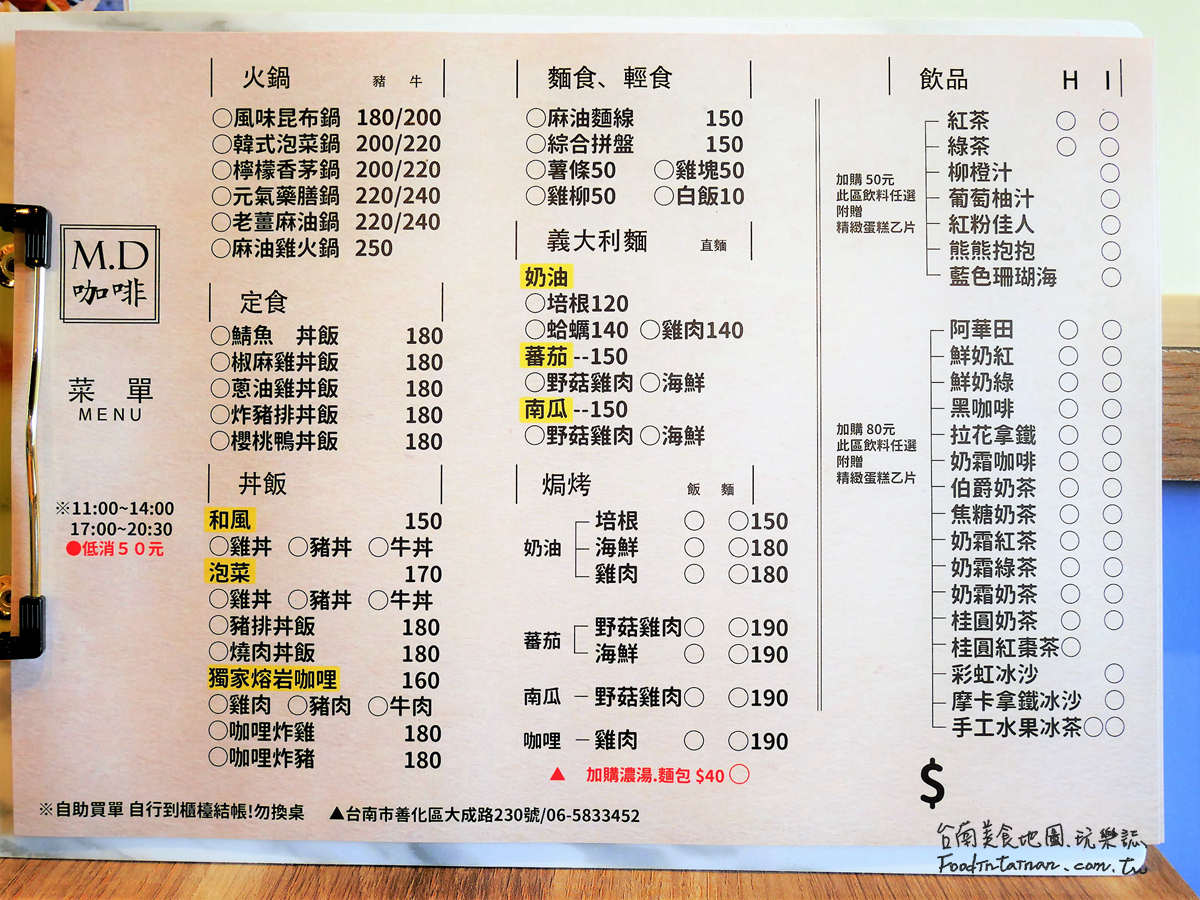 M.D
咖啡
菜 單
MENU
※11:00~14:00
17:00~20:30
●低消50元
火鍋 豬 牛
○風味昆布鍋 180/200
○韓式泡菜鍋 200/220
○檸檬香茅鍋 200/220
○元氣藥膳鍋 220/240
○老薑麻油鍋 220/240
○麻油雞火鍋 250
定食
○鯖魚 丼飯 180
○椒麻雞丼飯 180
○蔥油雞丼飯 180
○炸豬排丼飯 180
○櫻桃鴨丼飯 180
丼飯
和風 150
○雞丼 ○豬丼 ○牛丼
泡菜 170
○雞丼 ○豬丼 ○牛丼
○豬排丼飯 180
○燒肉丼飯 180
獨家熔岩咖哩 160
○雞肉 ○豬肉 ○牛肉
○咖哩炸雞 180
○咖哩炸豬 180
麵食、輕食
○麻油麵線 150
○綜合拼盤 150
○薯條50 ○雞塊50
○雞柳50 ○白飯10
義大利麵 直麵
奶油
○培根120
○蛤蠣140 ○雞肉140
蕃茄--150
○野菇雞肉 ○海鮮
南瓜--150
○野菇雞肉 ○海鮮
焗烤 飯 麵
奶油
培根 ○ ○150
海鮮 ○ ○180
雞肉 ○ ○180
蕃茄
野菇雞肉○ ○190
海鮮 ○ ○190
南瓜 － 野菇雞肉○ ○190
咖哩 － 雞肉 ○ ○190
▲ 加購濃湯.麵包 $40 ○
飲品 H I
加購 50元
此區飲料任選
附贈
精緻蛋糕乙片
紅茶 ○ ○
綠茶 ○ ○
柳橙汁 ○
葡萄柚汁 ○
紅粉佳人 ○
熊熊抱抱 ○
藍色珊瑚海 ○
加購 80元
此區飲料任選
附贈
精緻蛋糕乙片
阿華田 ○ ○
鮮奶紅 ○ ○
鮮奶綠 ○ ○
黑咖啡 ○ ○
拉花拿鐵 ○ ○
奶霜咖啡 ○ ○
伯爵奶茶 ○ ○
焦糖奶茶 ○ ○
奶霜紅茶 ○ ○
奶霜綠茶 ○ ○
奶霜奶茶 ○ ○
桂圓奶茶 ○ ○
桂圓紅棗茶○
彩虹冰沙 ○
摩卡拿鐵冰沙 ○
手工水果冰茶○○
$
※自助買單 自行到櫃檯結帳!勿換桌 ▲台南市善化區大成路230號/06-5833452
台南美食地圖.玩樂誌
Foodintainan.com.tw